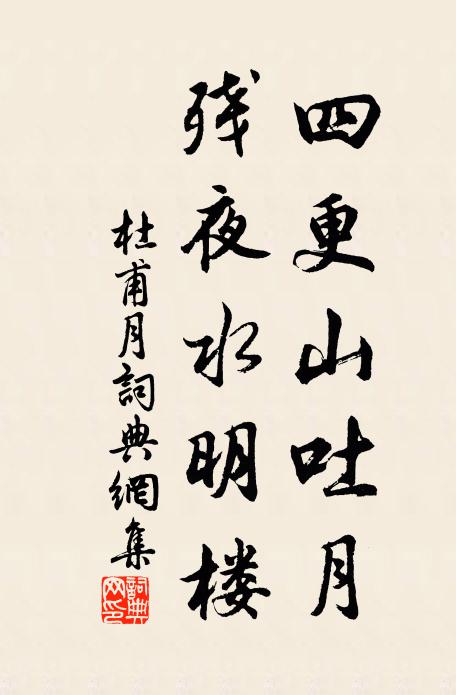 四更山吐月
残夜水明楼
杜甫月詞典網集
詞典
网印